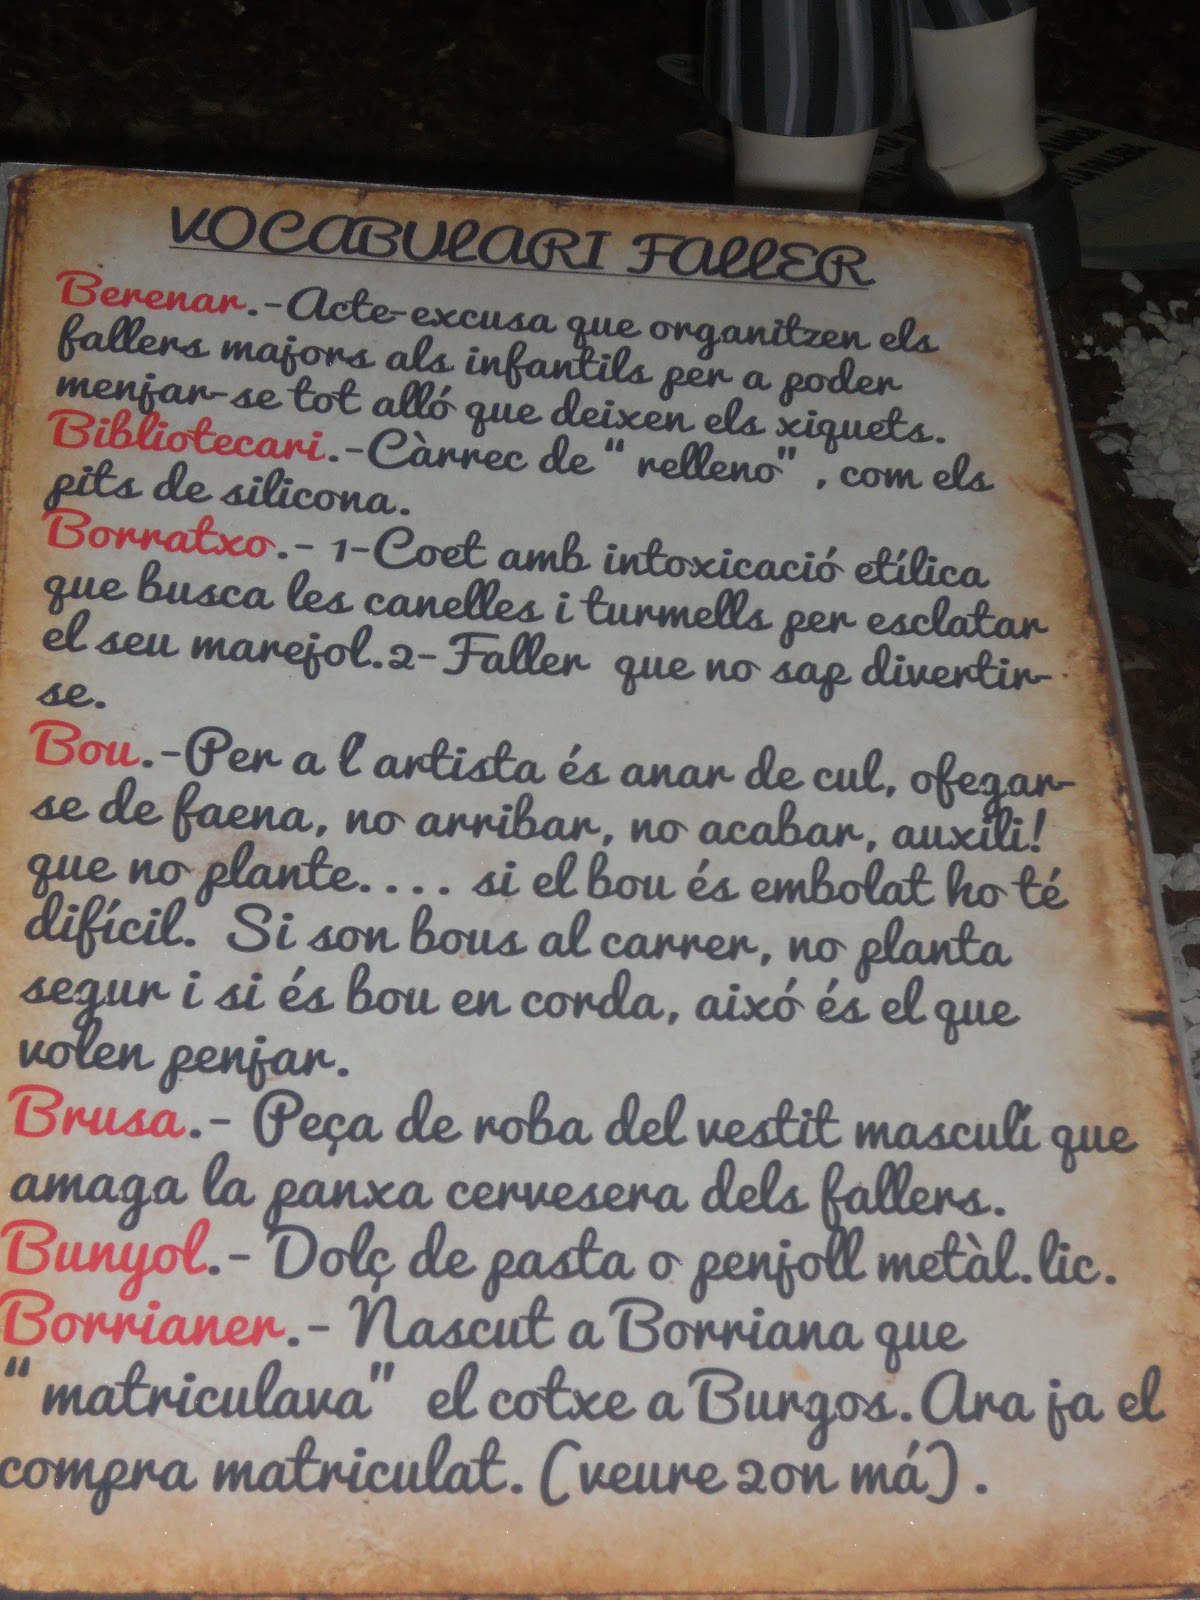 VOCABULARI FALLER
Berenar.-Acte-excusa que organitzen els
fallers majors als infantils per a poder
menjar-se tot alló que deixen els xiquets.
Bibliotecari.-Càrrec de " relleno" , com els
pits de silicona.
Borratxo.- 1-Coet amb intoxicació etílica
que busca les canelles i turmells per esclatar
el seu marejol.2-Faller que no sap divertir-
se.
Bou.-Per a l'artista és anar de cul, ofegar-
se de faena, no arribar, no acabar, auxili!
que no plante.... si el bou és embolat ho té
difícil. Si son bous al carrer, no planta
segur i si és bou en corda, aixó és el que
volen penjar.
Brusa.- Peça de roba del vestit masculí que
amaga la panxa cervesera dels fallers.
Bunyol.- Dolç de pasta o penjoll metàl.lic.
Borrianer.- Nascut a Borriana que
"matriculava" el cotxe a Burgos. Ara ja el
compra matriculat. (veure 2on má).